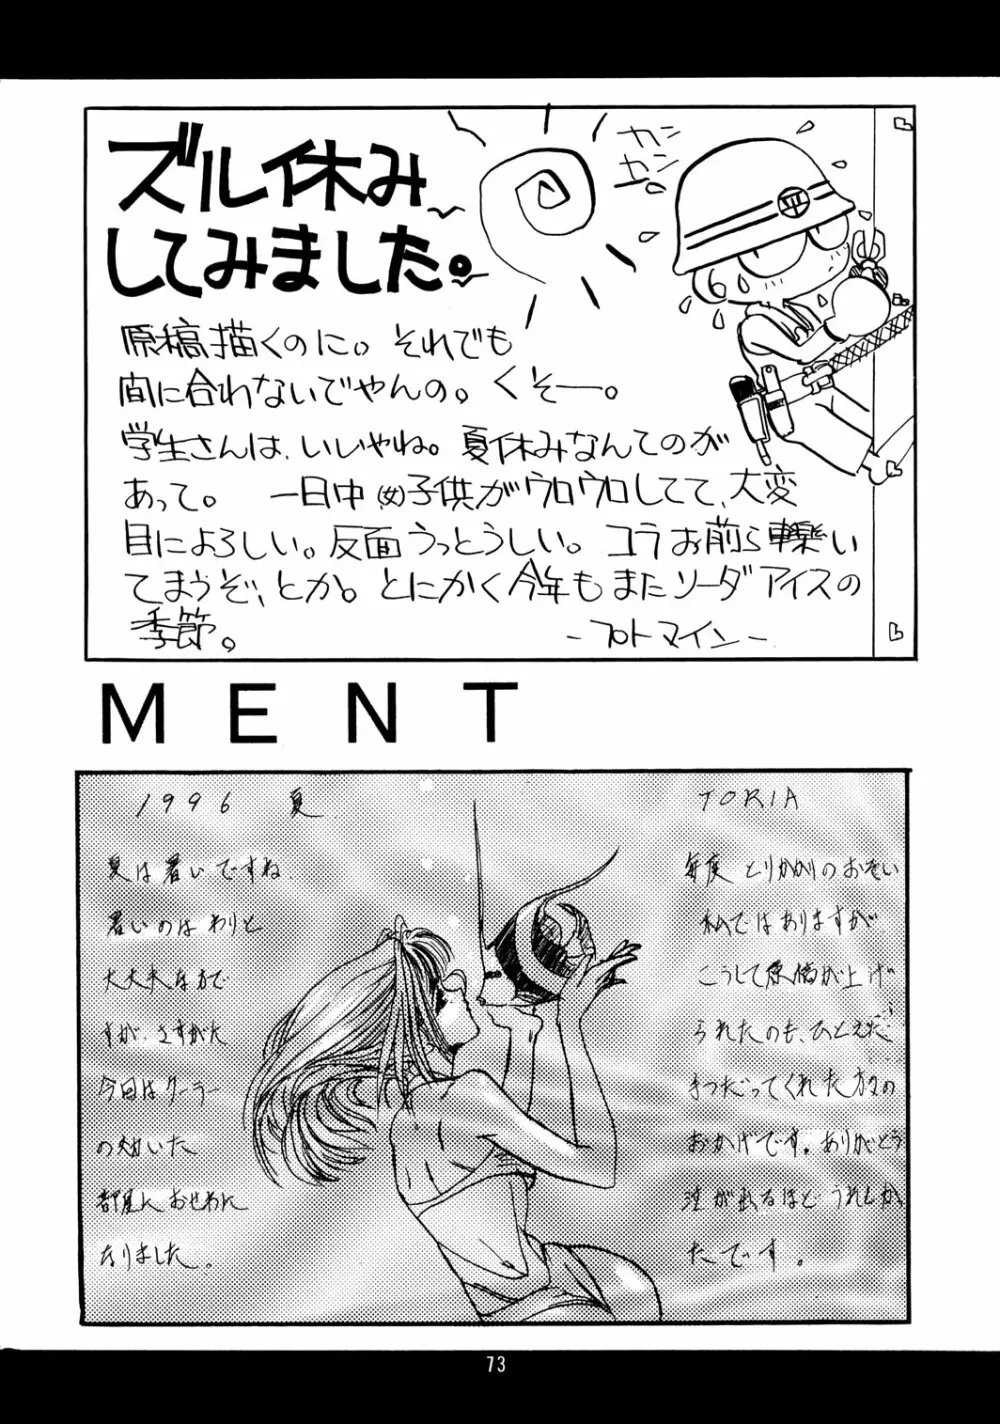 ズル休み
してみました。
カン
カン
原稿描くのに。それでも
間に合わないでやんの。くそー。
学生さんは、いいやね。夏休みなんてのが
あって。一日中(女)子供がウロウロしてて、大変
目によろしい。反面うっとうしい。コラお前ら轢い
てまうぞ、とか。とにかく今年もまたソーダアイスの
季節。
-プロトマイン-
MENT
1996 夏
TORIA
夏は暑いですね.
暑いのはわりと
大丈夫なので
すが、さすがに
今回はクーラー
の効いた
部屋におせわに
なりました。
毎度とりかかりのおそい
私ではありますが、
こうして原稿が上げ
られたのも、ひとえに
手つだってくれた方々の
おかげです。ありがとう
涙が出るほどうれしかっ
たです。
73